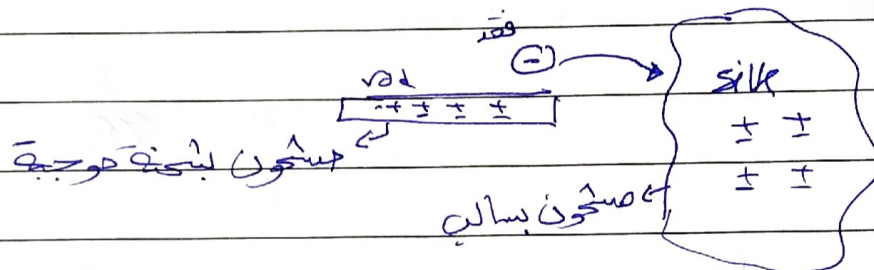 فقد
⊖
rod
± ± ± ±
silk
± ±
± ±
مشحون بشحنة موجبة
مشحون بسالب